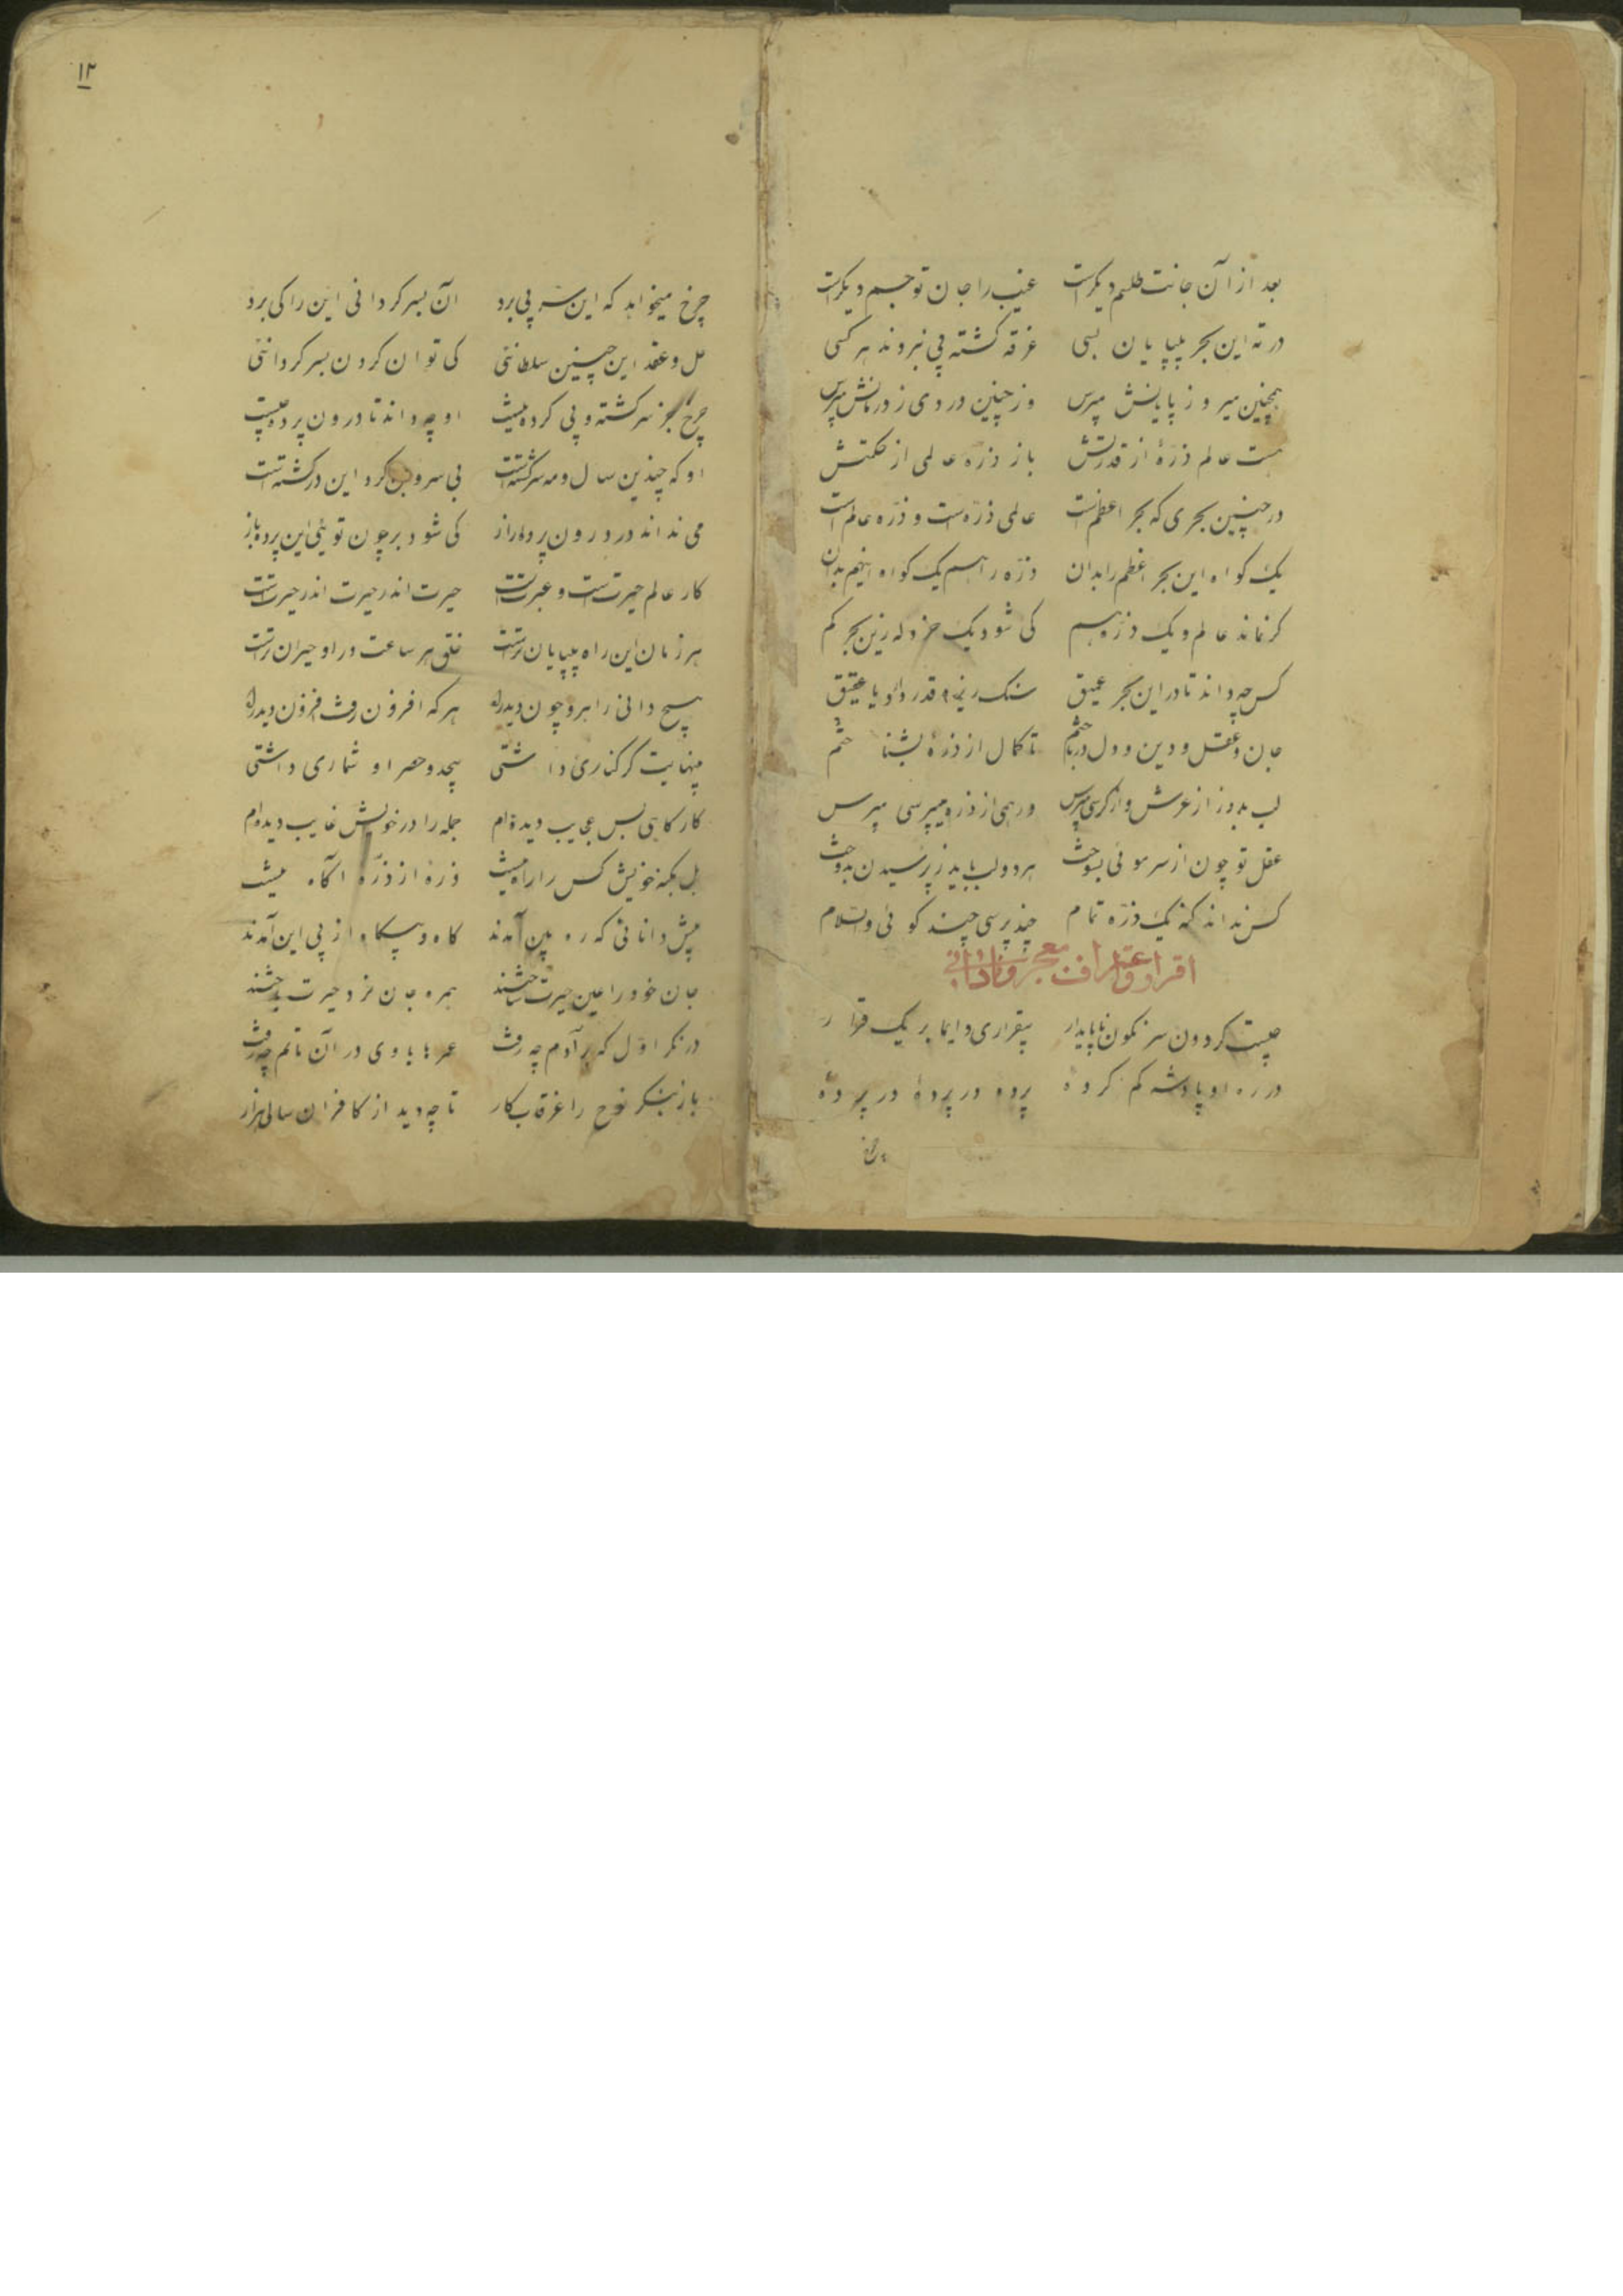 بعد از آن جانت طلسم دیکرست غیب را جان تو جسم دیکرست
در ته این بحر بیپایان بسی غرقه کشته پی نبردند هر کسی
همچنین میرو ز پایانش مپرس وز چنین دردی ز درمانش مپرس
هست عالم ذرهٔ از قدرتش باز ذره عالمی از حکمتش
در چنین بحری که بحر اعظمست عالمی ذره‌ست و ذره عالم است
یک کواه این بحر اعظم را بدان ذره را هم یک کواه اینهم بدان
کر نماند عالم و یک ذره هم کی شود یک خردله زین بحر کم
کس چه داند تا در این بحر عمیق سنک ریزه قدر دارد یا عقیق
جان و عقل و دین و دل درباختم تا کمال از ذرهٔ بشناختم
لب بدوز از عرش و از کرسی مپرس ور همی از ذره میپرسی مپرس
عقل تو چون از سر موئی بسوخت هر دو لب باید ز پرسیدن بدوخت
کس نداند کنه یک ذره تمام چند پرسی چند کوئی والسلام
اقرار و اعتراف بعجز و نادانی
چیست کردون سرنکون ناپایدار بیقراری دایما بر یک قرار
در ره او پا و سر کم کردهٔ پرده در پردهٔ در پردهٔ
چرخ
۱۳
چرخ میخواهد که این سر پی برد آن بسرکردانی این را کی برد
حل و عقد این چنین سلطانئی کی توان کردن بسرکردانئی
چرخ جز سرکشته و پی کرده نیست او چه داند تا درون پرده چیست
او که چندین سال و مه سرکشتست بی سر و بن کرد این در کشتست
می نداند در درون پرده راز کی شود بر چون توئی این پرده باز
کار عالم حیرتست و عبرتست حیرت اندر حیرت اندر حیرتست
هر زمان این راه بیپایان ترست خلق هر ساعت در او حیران ترست
هیچ دانی راهرو چون دید راه هر که افزون رفت افزون دید راه
بینهایت کر کناری داشتی بیحد و حصر او شماری داشتی
کار کاهی بس عجایب دیده‌ام جمله را در خویش غایب دیده‌ام
بل بکنه خویش کس را راه نیست ذرهٔ از ذرهٔ آکاه نیست
پیش دانائی که ره بین آمدند کاه و بیکاه از پی این آمدند
جان خود را عین حیرت ساختند همره جان عجز و حیرت ساختند
درنکر اول که بر آدم چه رفت عمرها با وی در آن ماتم چه رفت
باز بنکر نوح را غرقاب کار تا چه دید از کافران سالی هزار